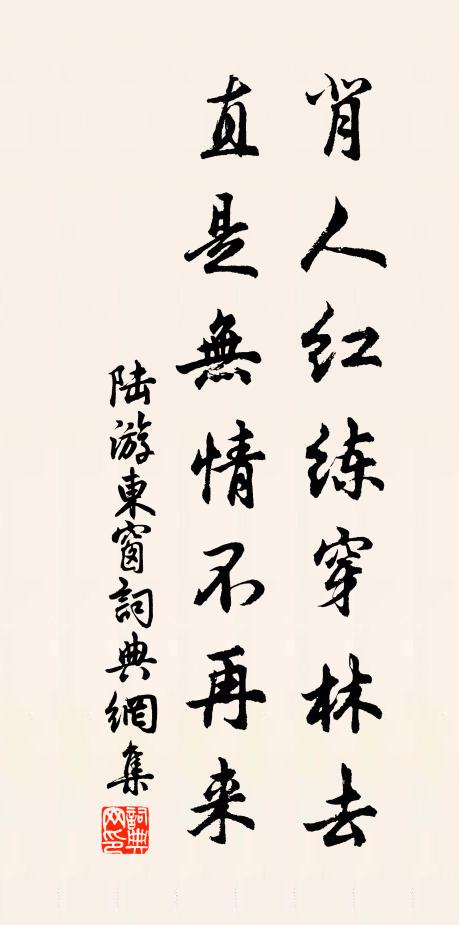 背人红练穿林去
直是無情不再来
陆游東窗詞典網集
詞典网印